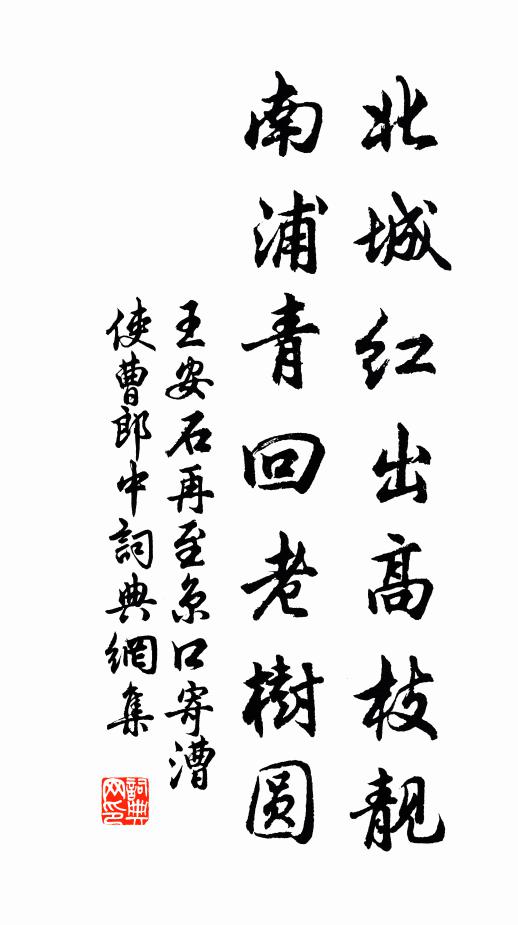 北城红出高枝靓
南浦青回老樹圆
王安石再至京口寄漕
使曹郎中詞典網集
詞典网印